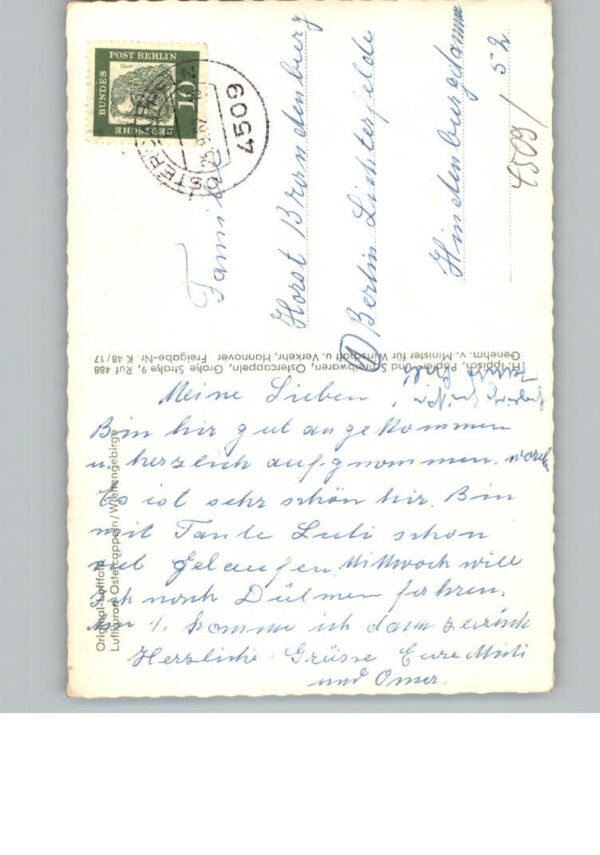 DEUTSCHE BUNDES POST BERLIN
10
4509
Familie
Horst Brandenburg
1 Berlin Lichterfelde
Hindenburgdamm
52
4509/
H. Tippisch, Papier- und Schreibwaren, Ostercappeln, Große Straße 9, Ruf 488
Genehm. v. Minister für Wirtschaft u. Verkehr, Hannover Freigabe-Nr. K 48/17
Original-Luftfoto
Luftkurort Ostercappeln/Wiehengebirge
Meine Lieben,
Bin hir gut angekommen
u. herzlich aufgnommen. worden
Es ist sehr schön hir. Bin
mit Tante Luti schon
viel gelaufen, Mittwoch will
ich noch Dülmen fahren.
1. komme ich dann zurück
Herzliche Grüsse Eure Mutti
und Oma.